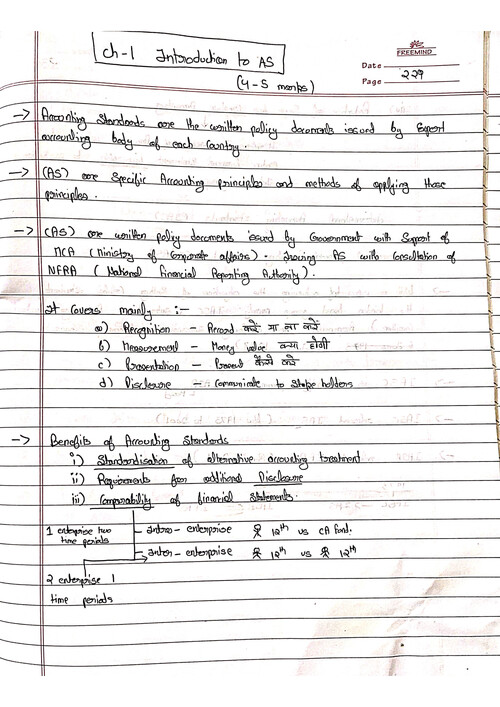 FREEMIND
Date
Page 229
Ch-1 Introduction to AS
(4-5 marks)
→ Accounting Standards are the written policy documents issued by Expert
accounting body of each Country.
→ (AS) are Specific Accounting principles and methods of applying those
principles.
→ (AS) are written policy documents issued by Government with Support of
MCA (Ministry of Corporate affairs). Issuing AS with Consultation of
NFRA (National Financial Reporting Authority).
It Covers mainly :-
a) Recognition - Record करें या ना करें
b) Measurement - Money value क्या होगी
c) Presentation - Present कैसे करे
d) Disclosure - Communicate to Stake holders
→ Benefits of Accounting Standards
i) Standardisation of alternative accounting treatment
ii) Requirements for additional Disclosure
iii) Comparability of financial Statements.
1 enterprise two
time periods
Intra-enterprise 12th vs CA Fond.
Inter-enterprise 12th vs 12th
2 enterprise 1
time periods